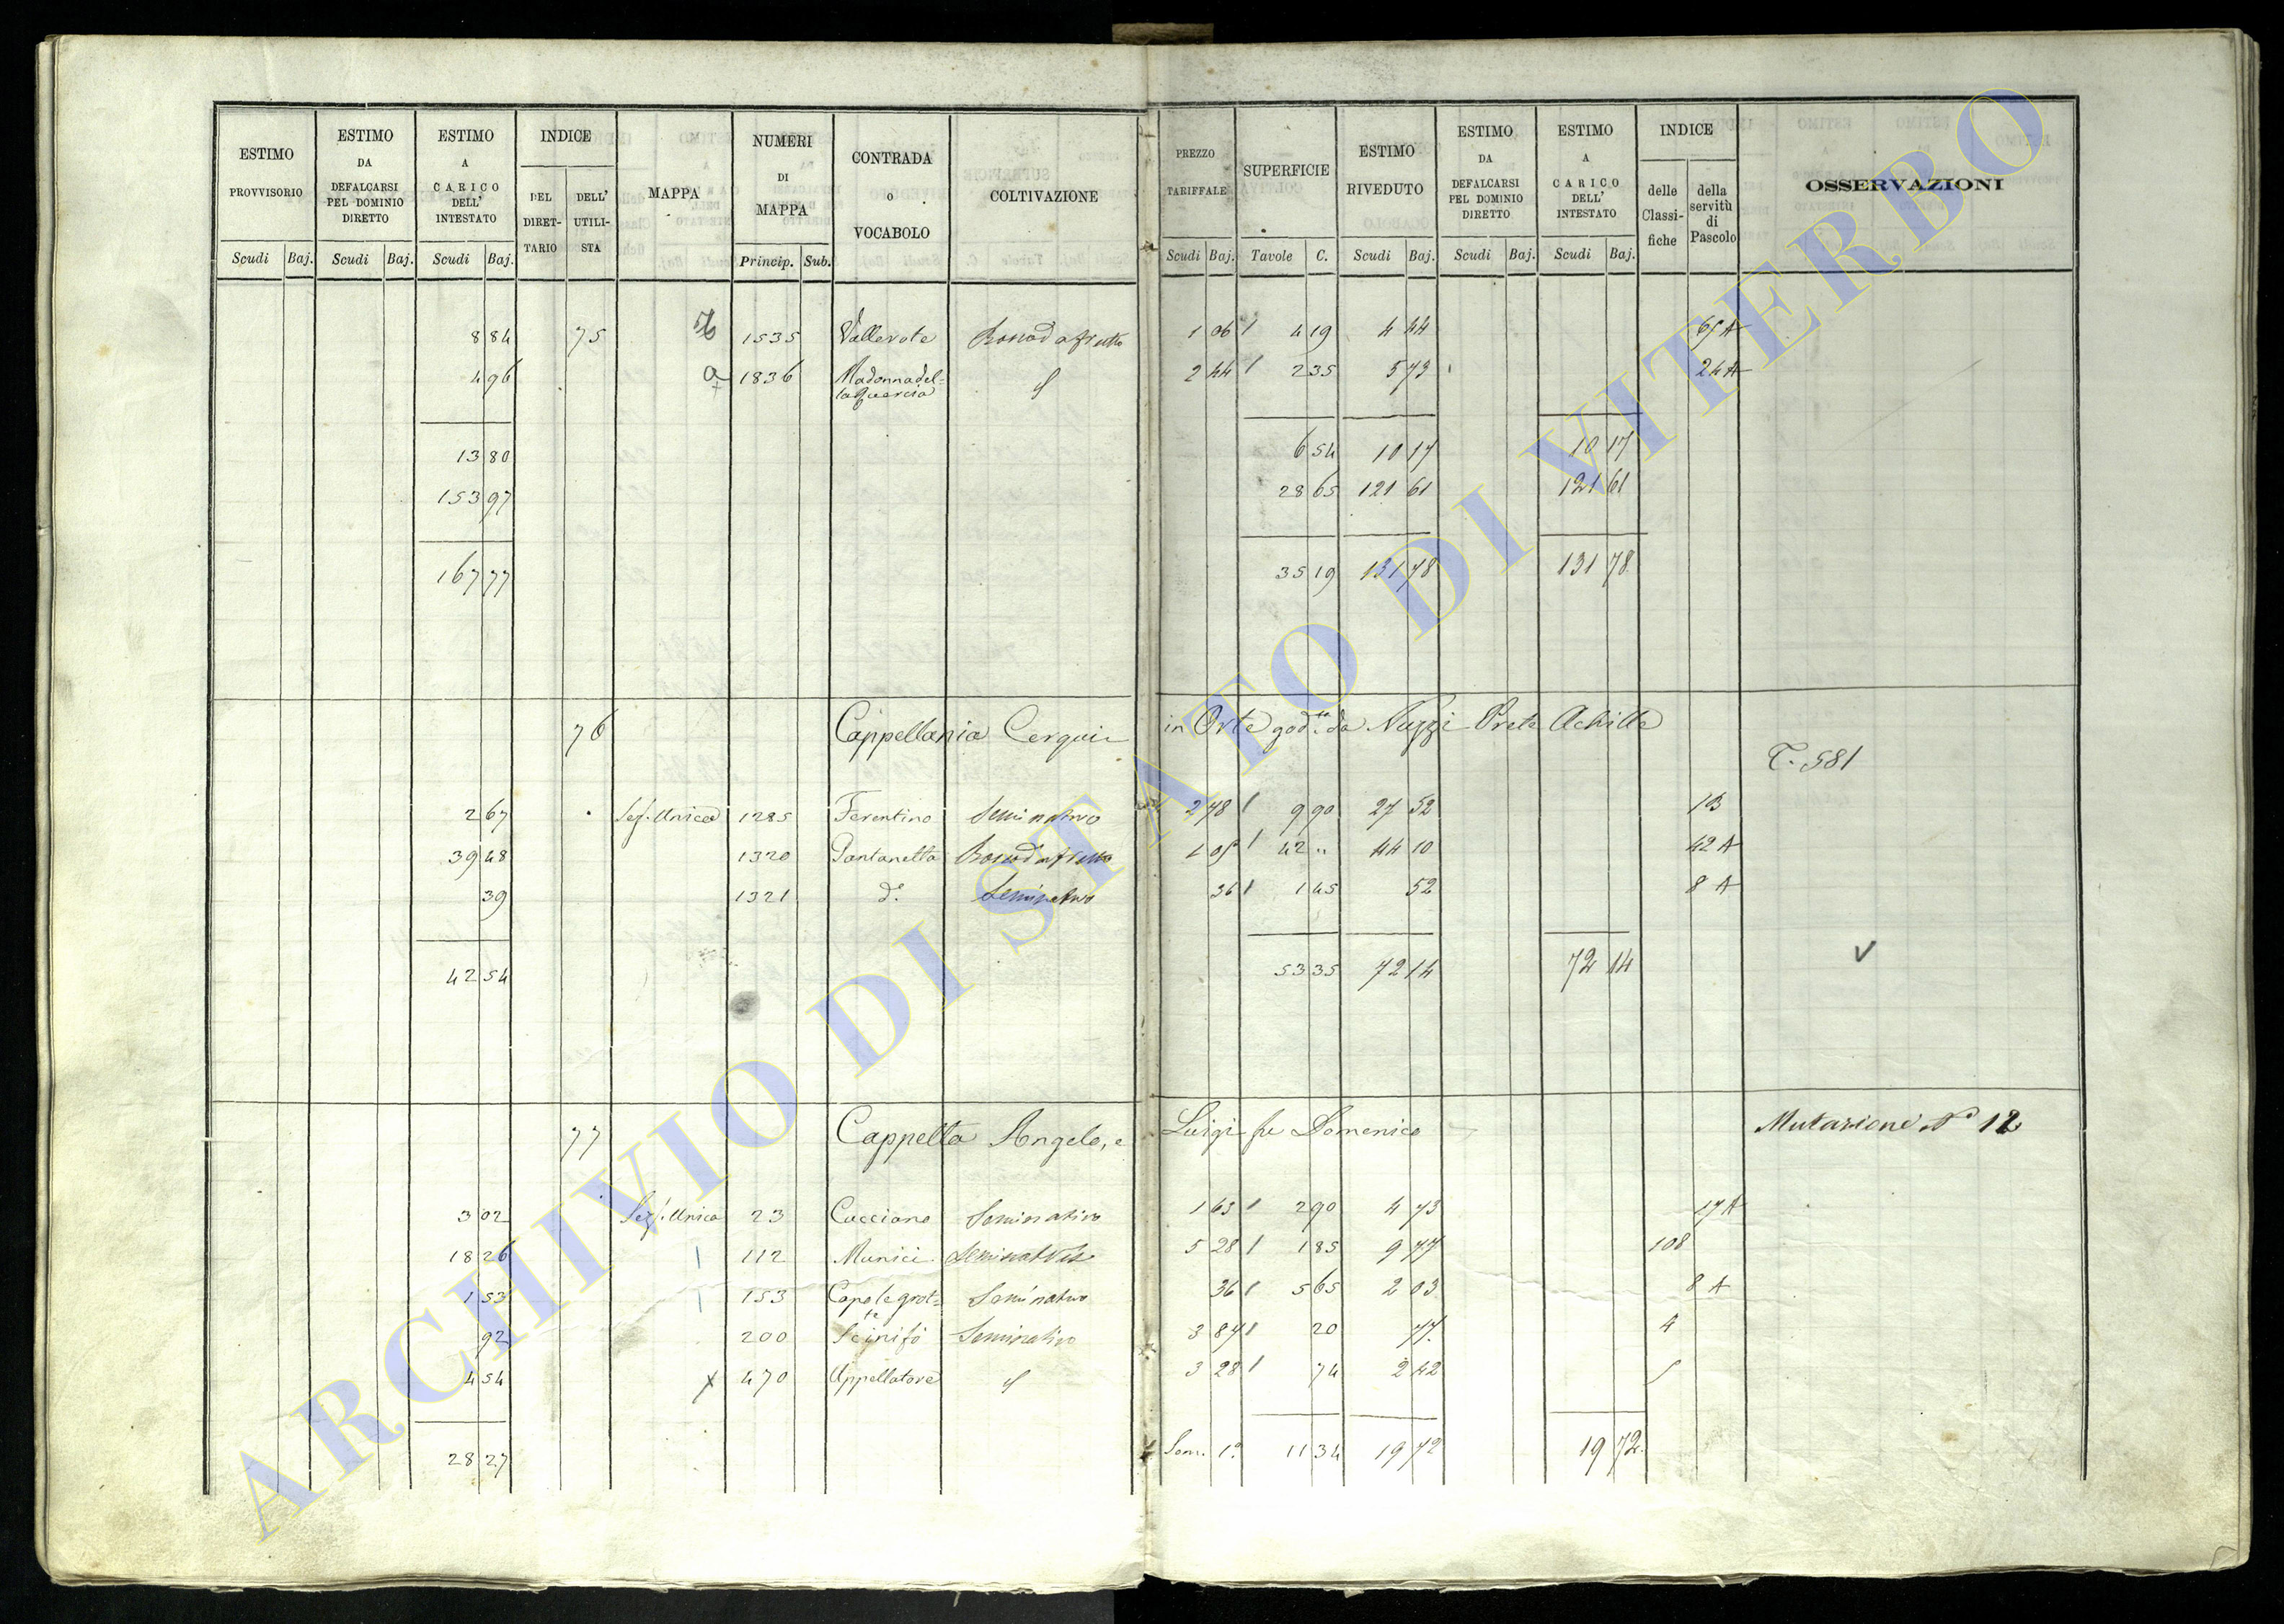 ESTIMO PROVVISORIO | ESTIMO DA DEFALCARSI PEL DOMINIO DIRETTO | ESTIMO A CARICO DELL' INTESTATO | INDICE | MAPPA | NUMERI DI MAPPA | CONTRADA o VOCABOLO | COLTIVAZIONE | PREZZO TARIFFALE | SUPERFICIE | ESTIMO RIVEDUTO | ESTIMO DA DEFALCARSI PEL DOMINIO DIRETTO | ESTIMO A CARICO DELL' INTESTATO | INDICE | OSSERVAZIONI
DEL DIRETTARIO | DELL' UTILISTA | delle Classifiche | della servitù di Pascolo
Scudi | Baj. | Scudi | Baj. | Scudi | Baj. | Princip. | Sub. | Scudi | Baj. | Tavole | C. | Scudi | Baj. | Scudi | Baj. | Scudi | Baj.
8 84 | 75 | 1535 | Vallerote | Boscodafrutto | 1 06 | 4 19 | 4 44 | 65 A
4 96 | a | 1836 | Madonnadel= | 2 44 | 2 35 | 5 73 | 24 A
laquercia
13 80 | 6 54 | 10 17 | 10 17
153 97 | 28 65 | 121 61 | 121 61
167 77 | 35 19 | 131 78 | 131 78
76 | Cappellania Cerqui in Orte god.ta da Nuzzi Prete Achille
T. 581
2 67 | Sez. Unica | 1285 | Ferentino | Seminativo | 2 78 | 9 90 | 27 52 | 13
39 48 | 1320 | Pantanella | Boscodafrutto | 1 05 | 42 " | 44 10 | 42 A
39 | 1321 | d.o | Seminativo | 36 | 1 45 | 52 | 8 A
42 54 | 53 35 | 72 14 | 72 14
77 | Cappella Angelo, e Luigi fu Domenico | Mutazione N° 12
3 02 | Sez. Unica | 23 | Cucciano | Seminativo | 1 63 | 2 90 | 4 73 | 17 A
18 26 | 112 | Munici | 5 28 | 1 85 | 9 77 | 108
1 53 | 153 | Capolegrot= | Seminativo | 36 | 5 65 | 2 03 | 8 A
te
92 | 200 | Scinifo | Seminativo | 3 87 | 20 | 77 | 4
4 54 | x | 470 | Appellatore | 3 28 | 74 | 2 42
28 27 | Som. 1a | 11 34 | 19 72 | 19 72
ARCHIVIO DI STATO DI VITERBO